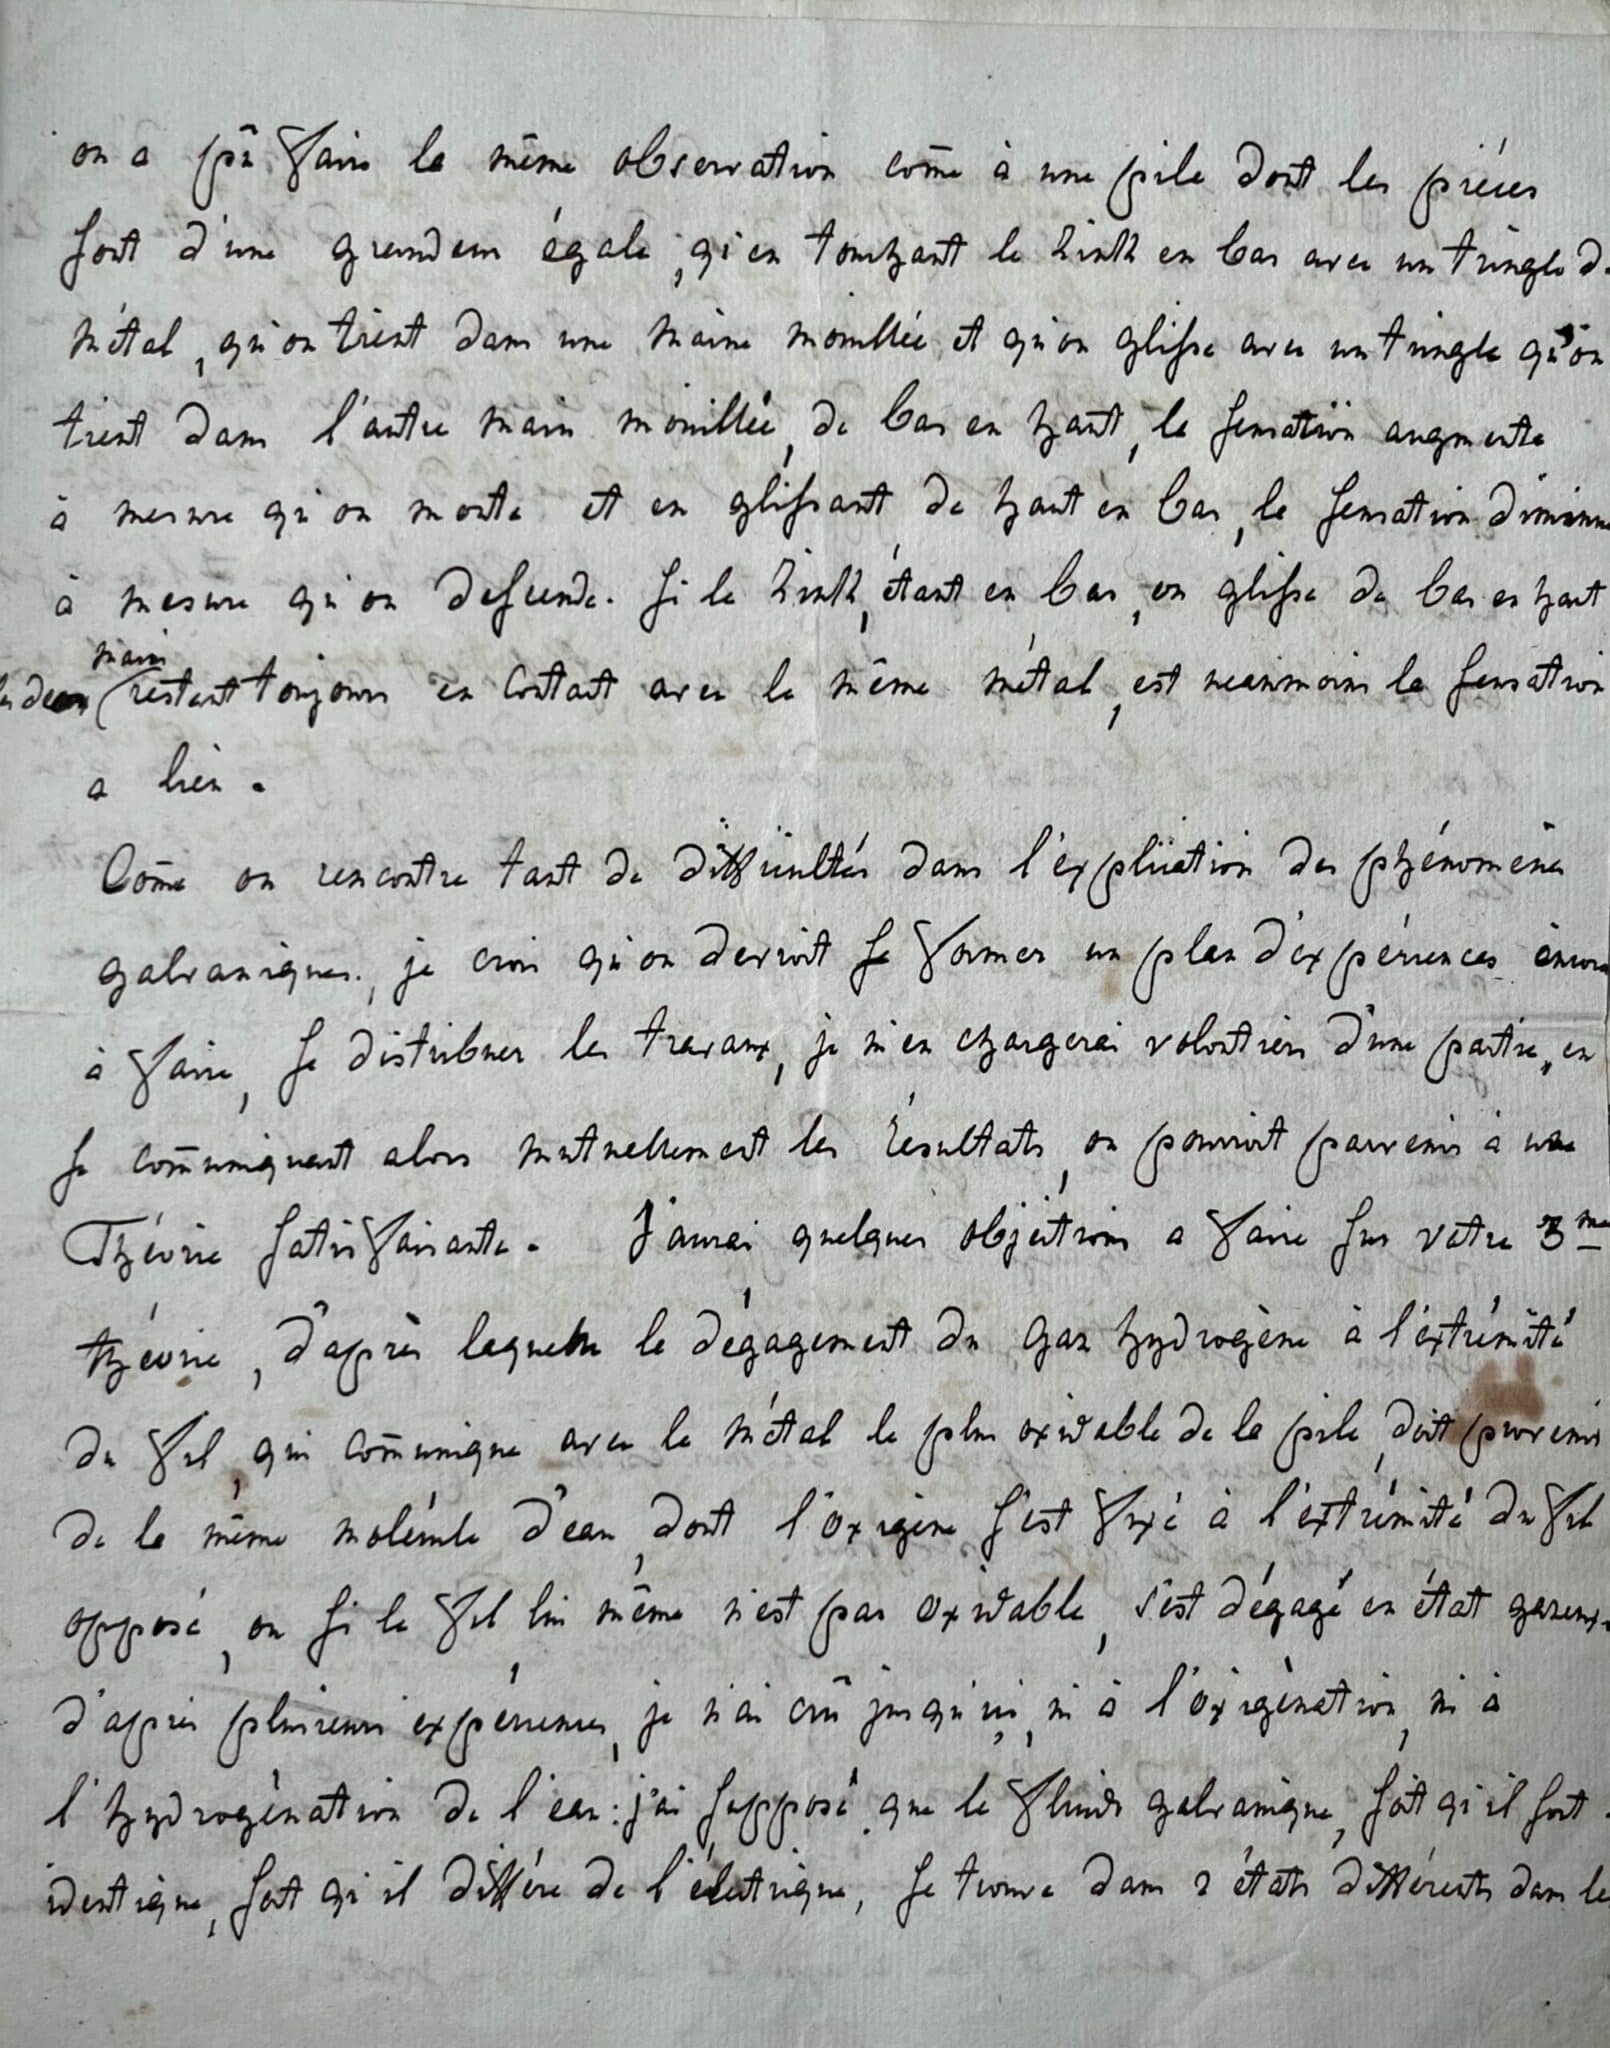 on a pû faire la même observation com̄e à une pile dont les piéces
sont d'une grandeur égale, qu'en touchant le Zink en bas avec un tringle de
métal, qu'on tient dans une maine mouillée et qu'on glisse avec un tringle qu'on
tient dans l'autre main mouillée, de bas en haut, la sensation augmente
à mesure qu'on monte et en glissant de haut en bas, la sensation diminue
à mesure qu'on descende. Si le Zink, étant en bas, on glisse de bas en haut
main
les deux restant toujours en contact avec le même métal, est neanmoins la sensation
a lieu.
Com̄e on rencontre tant de difficultés dans l'explication des phénomènes
galvaniques, je crois qu'on devroit se former un plan d'expériences encore
à faire, se distribuer les travaux, je m'en chargerai volontiers d'une partie, en
se com̄uniquant alors mutuellement les résultats, on pourroit parvenir à une
Théorie satisfaisante. J'aurai quelques objections a faire sur votre 3me
théorie, d'après laquelle le dégagement du gaz hydrogène à l'extrémité
du fil, qui com̄unique avec le métal le plus oxidable de la pile, doit provenir
de la même molécule d'eau, dont l'oxigène s'est fixé à l'extrémité du fil
opposé, ou si le fil lui même n'est pas oxidable, s'est dégagé en état gazeux.
d'après plusieurs expériences, je n'ai crû jusqu'ici, ni à l'oxigènation, ni à
l'hydrogènation de l'eau: j'ai supposé que le fluide galvanique, soit qu'il soit
identique, soit qu'il diffère de l'électrique, se trouve dans 2 états différents dans le